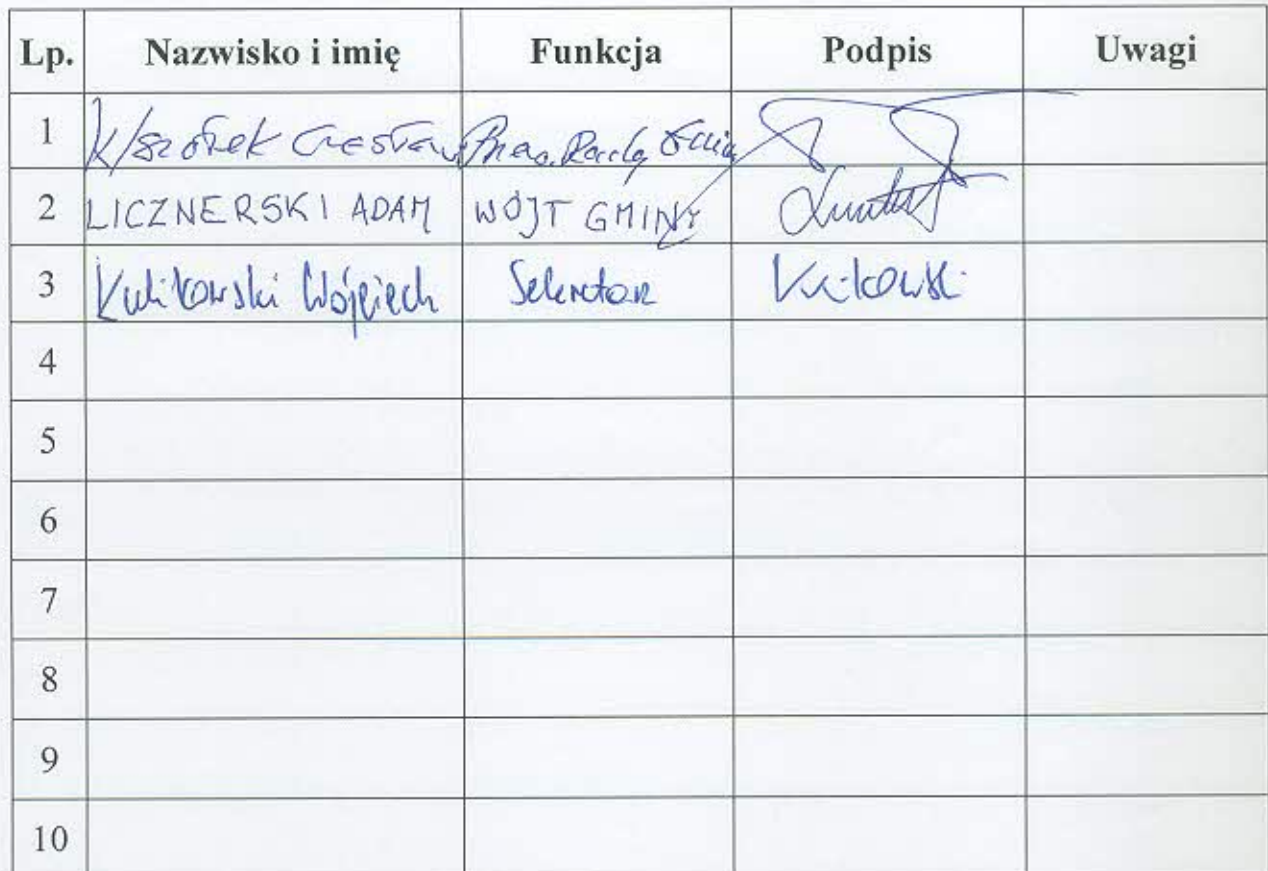 Lp. Nazwisko i imię Funkcja Podpis Uwagi
1 Czesław Rady
2 LICZNERSKI ADAM WÓJT GMINY
3 Kulikowski Wojciech Sekretarz Kulikowski
4
5
6
7
8
9
10